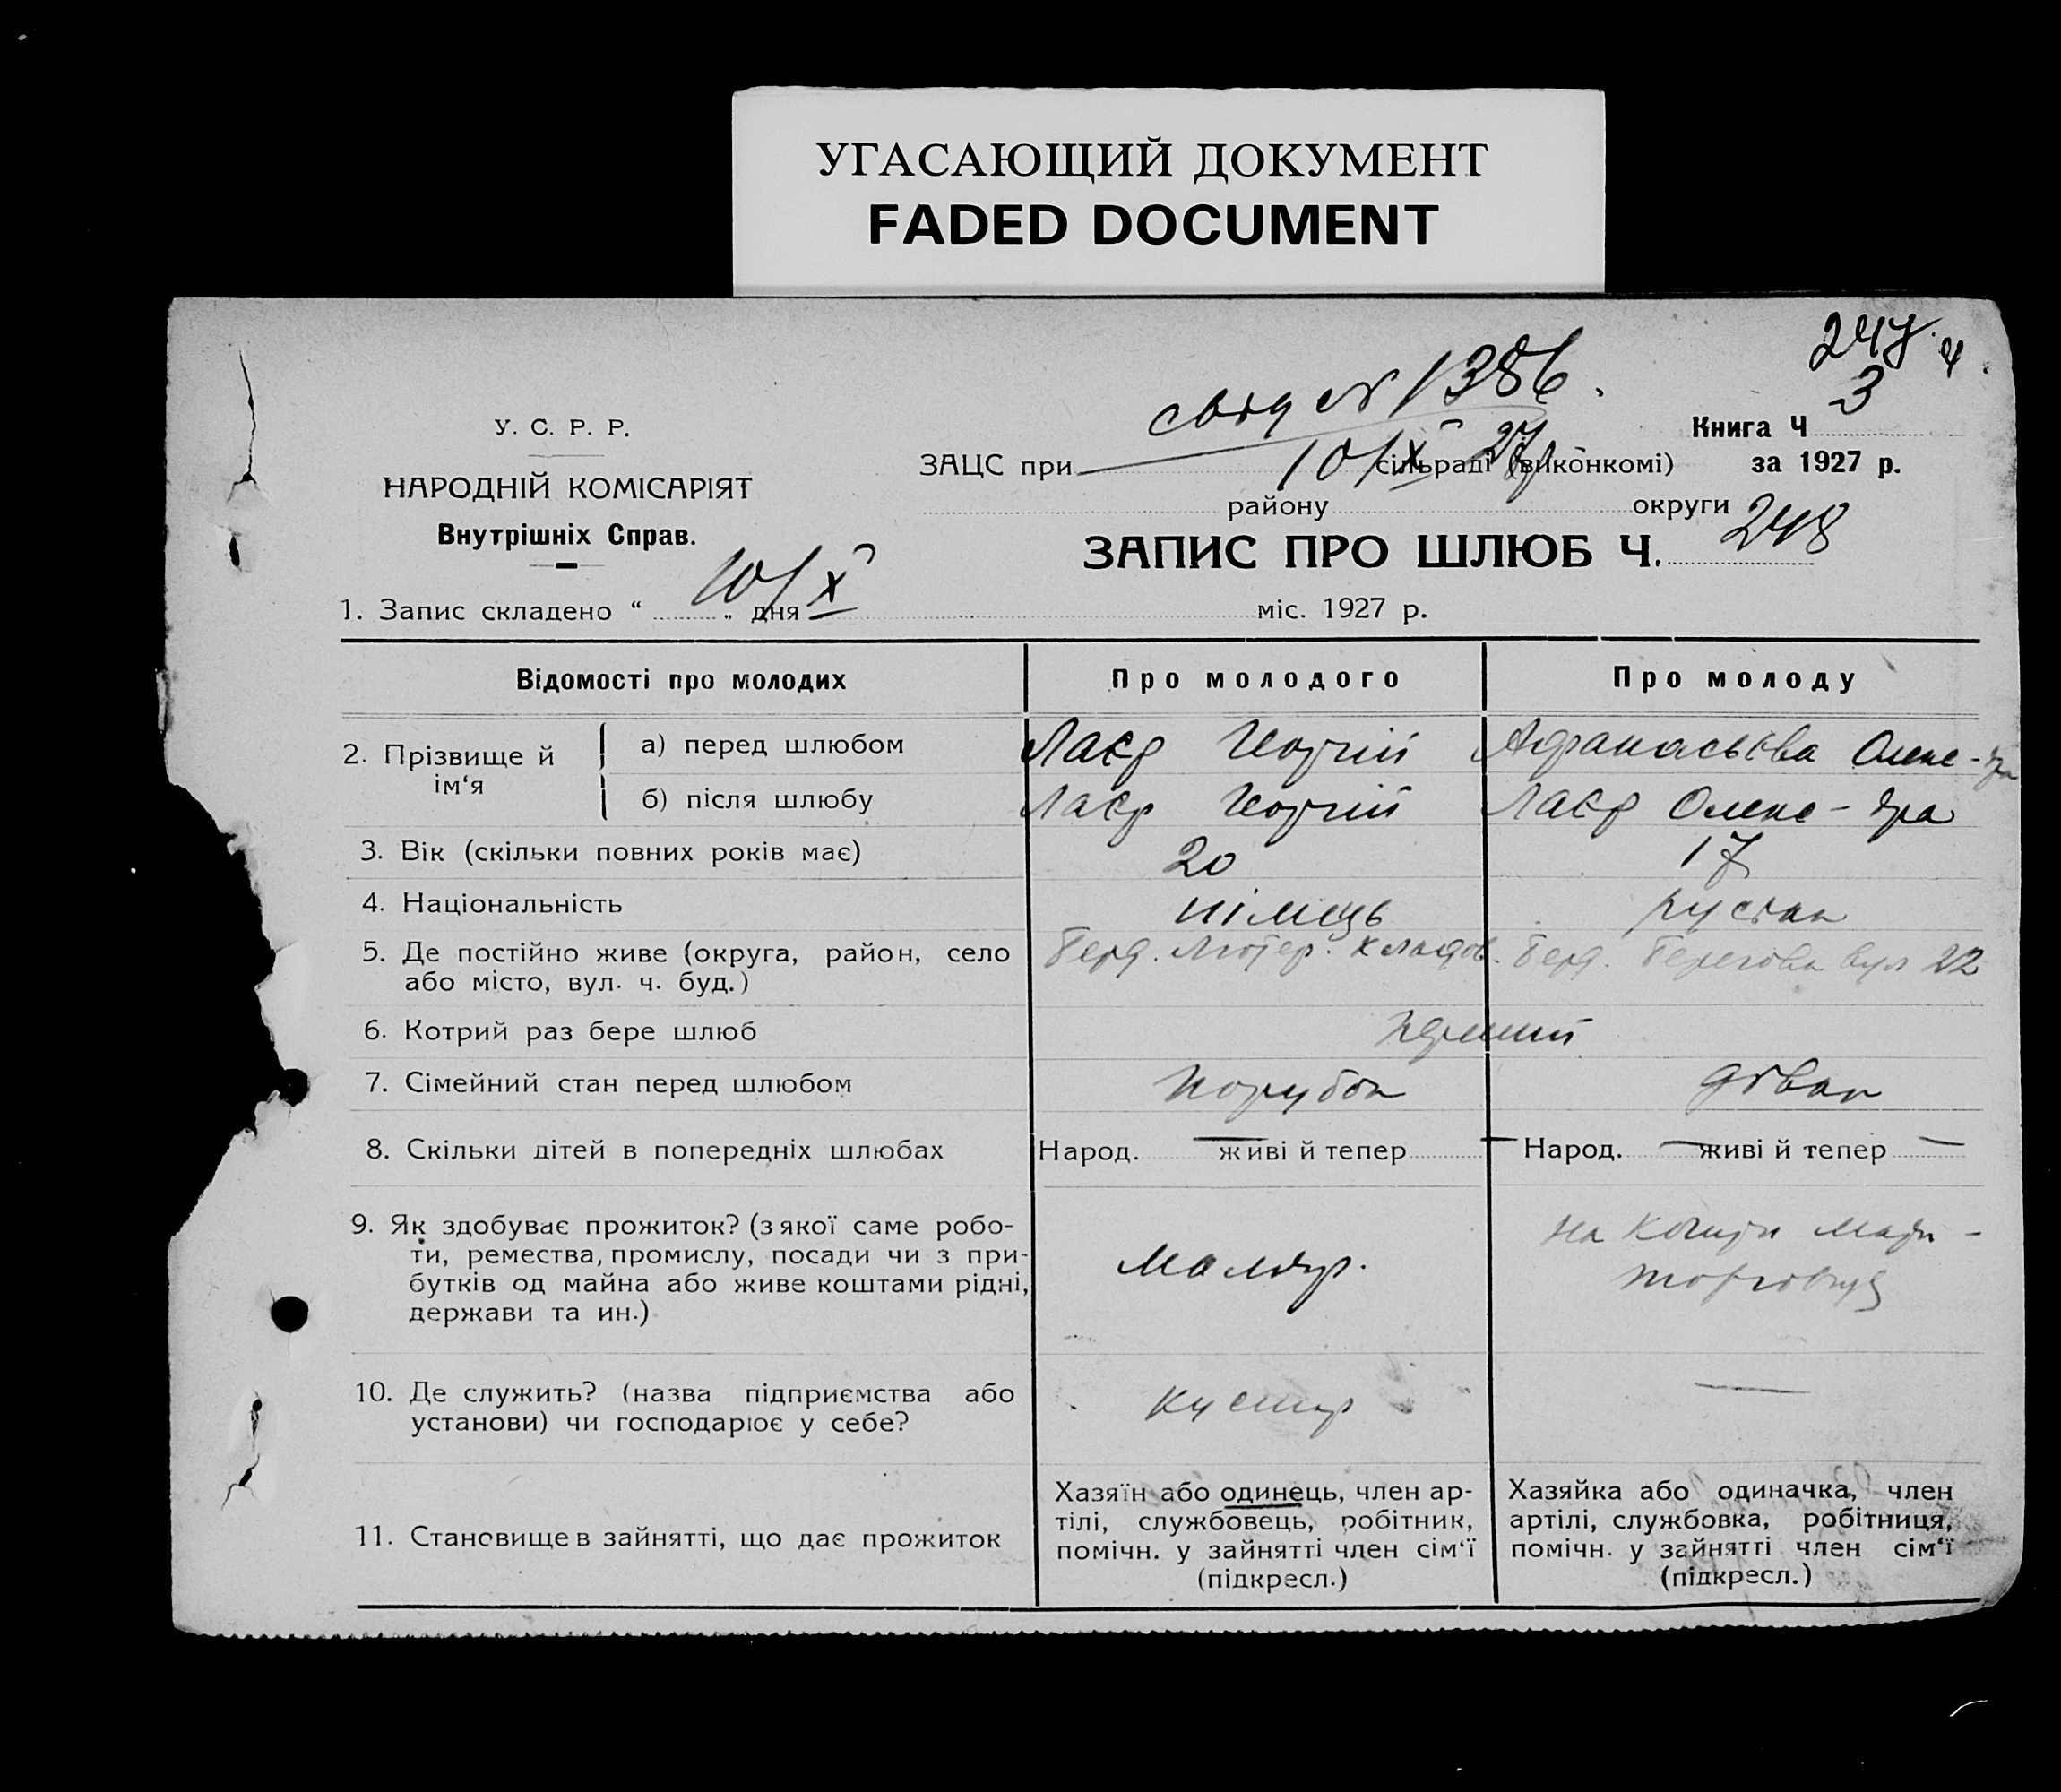 УГАСАЮЩИЙ ДОКУМЕНТ
FADED DOCUMENT
247.
3
свід № 1386.
У. С. Р. Р.
Книга Ч
ЗАЦС при 10/X 27 сільраді (виконкомі) за 1927 р.
НАРОДНІЙ КОМІСАРІЯТ
району округи
Внутрішніх Справ.
ЗАПИС ПРО ШЛЮБ Ч. 248
1. Запис складено “ 10/X „ дня міс. 1927 р.
Відомості про молодих Про молодого Про молоду
2. Прізвище й ім‘я
а) перед шлюбом Лаєр Георгій Афанасьєва Олекс-дра
б) після шлюбу Лаєр Георгій Лаєр Олекс-дра
3. Вік (скільки повних років має) 20 17
4. Національність німець руська
5. Де постійно живе (округа, район, село Берд. Лютер. кладов. Берд. Берегова вул 22
або місто, вул. ч. буд.)
6. Котрий раз бере шлюб перший
7. Сімейний стан перед шлюбом Парубок дівка
8. Скільки дітей в попередніх шлюбах Народ. — живі й тепер — Народ. — живі й тепер —
9. Як здобуває прожиток? (з якої саме робо-
ти, ремества, промислу, посади чи з при-
бутків од майна або живе коштами рідні,
держави та ин.)
Маляр.
на кошти мат-
торговця
10. Де служить? (назва підприємства або
установи) чи господарює у себе?
кустар —
11. Становище в зайнятті, що дає прожиток
Хазяїн або одинець, член ар-
тілі, службовець, робітник,
помічн. у зайнятті член сім‘ї
(підкресл.)
Хазяйка або одиначка, член
артілі, службовка, робітниця,
помічн. у зайнятті член сім‘ї
(підкресл.)